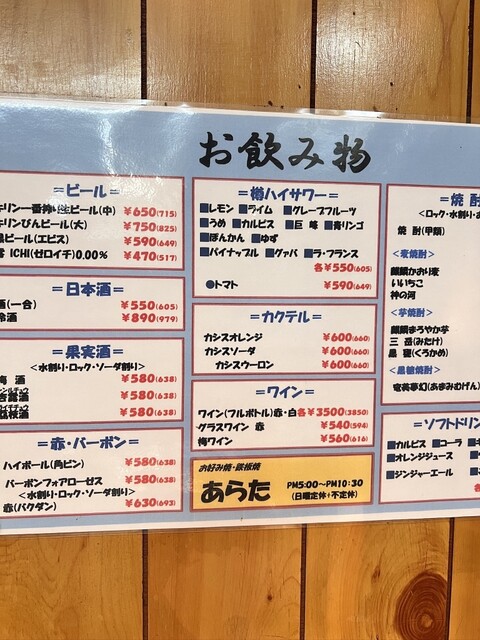 お飲み物
=ビール=
キリン一番搾り生ビール(中) ¥650(715)
キリンびんビール(大) ¥750(825)
黒ビール(エビス) ¥590(649)
零 ICHI(ゼロイチ)0.00% ¥470(517)
=日本酒=
酒(一合) ¥550(605)
冷酒 ¥890(979)
=果実酒=
<水割り・ロック・ソーダ割り>
梅酒 ¥580(638)
杏露酒 ¥580(638)
茘枝酒 ¥580(638)
=赤・バーボン=
ハイボール(角ビン) ¥580(638)
バーボンフォアローゼス ¥580(638)
<水割り・ロック・ソーダ割り>
赤(バクダン) ¥630(693)
=樽ハイサワー=
■レモン ■ライム ■グレープフルーツ
■うめ ■カルピス ■巨峰 ■青リンゴ
■ぽんかん ■ゆず
■パイナップル ■グァバ ■ラ・フランス
各¥550(605)
●トマト ¥590(649)
=カクテル=
カシスオレンジ ¥600(660)
カシスソーダ ¥600(660)
カシスウーロン ¥600(660)
=ワイン=
ワイン(フルボトル)赤・白 各¥3500(3850)
グラスワイン 赤 ¥540(594)
梅ワイン ¥560(616)
お好み焼・鉄板焼
あらた
PM5:00~PM10:30
(日曜定休・不定休)
=焼酎
<ロック・水割り・お
焼酎(甲類)
<麦焼酎>
麒麟かおり麦
いいちこ
神の河
<芋焼酎>
麒麟まろやか芋
三岳(みたけ)
黒霧(くろかめ)
<黒糖焼酎>
奄美夢幻(あまみむげん)
=ソフトドリン
■カルピス ■コーラ ■キ
■オレンジジュース
■ジンジャーエール
各